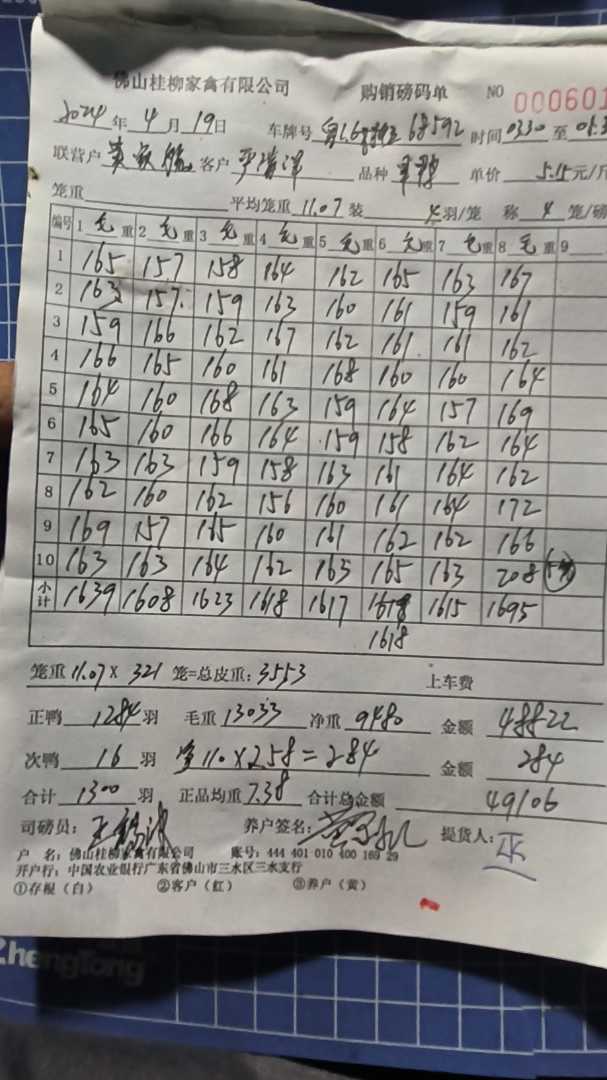 佛山桂柳家禽有限公司 购销磅码单 NO 000601
2024年 4月 19日 车牌号 68592 时间 0330 至
联营户 客户 品种 单价 5.15元/斤
笼重 平均笼重 11.07 装 4羽/笼 称 4 笼/磅
编号 1 毛重 2 毛重 3 毛重 4 毛重 5 毛重 6 毛重 7 毛重 8 毛重 9
1 165 157 158 164 162 165 163 167
2 163 157 159 163 160 161 159 161
3 159 166 162 167 162 161 161 162
4 166 165 160 161 168 160 160 164
5 164 160 168 163 159 164 157 169
6 165 160 166 164 159 158 162 164
7 163 163 159 158 163 161 164 162
8 162 160 162 156 160 161 164 172
9 169 157 165 160 161 162 162 166
10 163 163 164 162 163 165 163 208
小计 1639 1608 1623 1618 1617 1618 1615 1695
1618
笼重 11.07 × 321 笼=总皮重: 3553 上车费
正鸭 1284 羽 毛重 13033 净重 9480 金额 48822
次鸭 16 羽 110 × 2.58 = 284 金额 284
合计 1300 羽 正品均重 7.38 合计总金额 49106
司磅员: 养户签名: 提货人:
户 名: 佛山桂柳家禽有限公司 账号: 444 401 010 400 169 29
开户行: 中国农业银行广东省佛山市三水区三水支行
①存根（白） ②客户（红） ③养户（黄）
ZhengTong